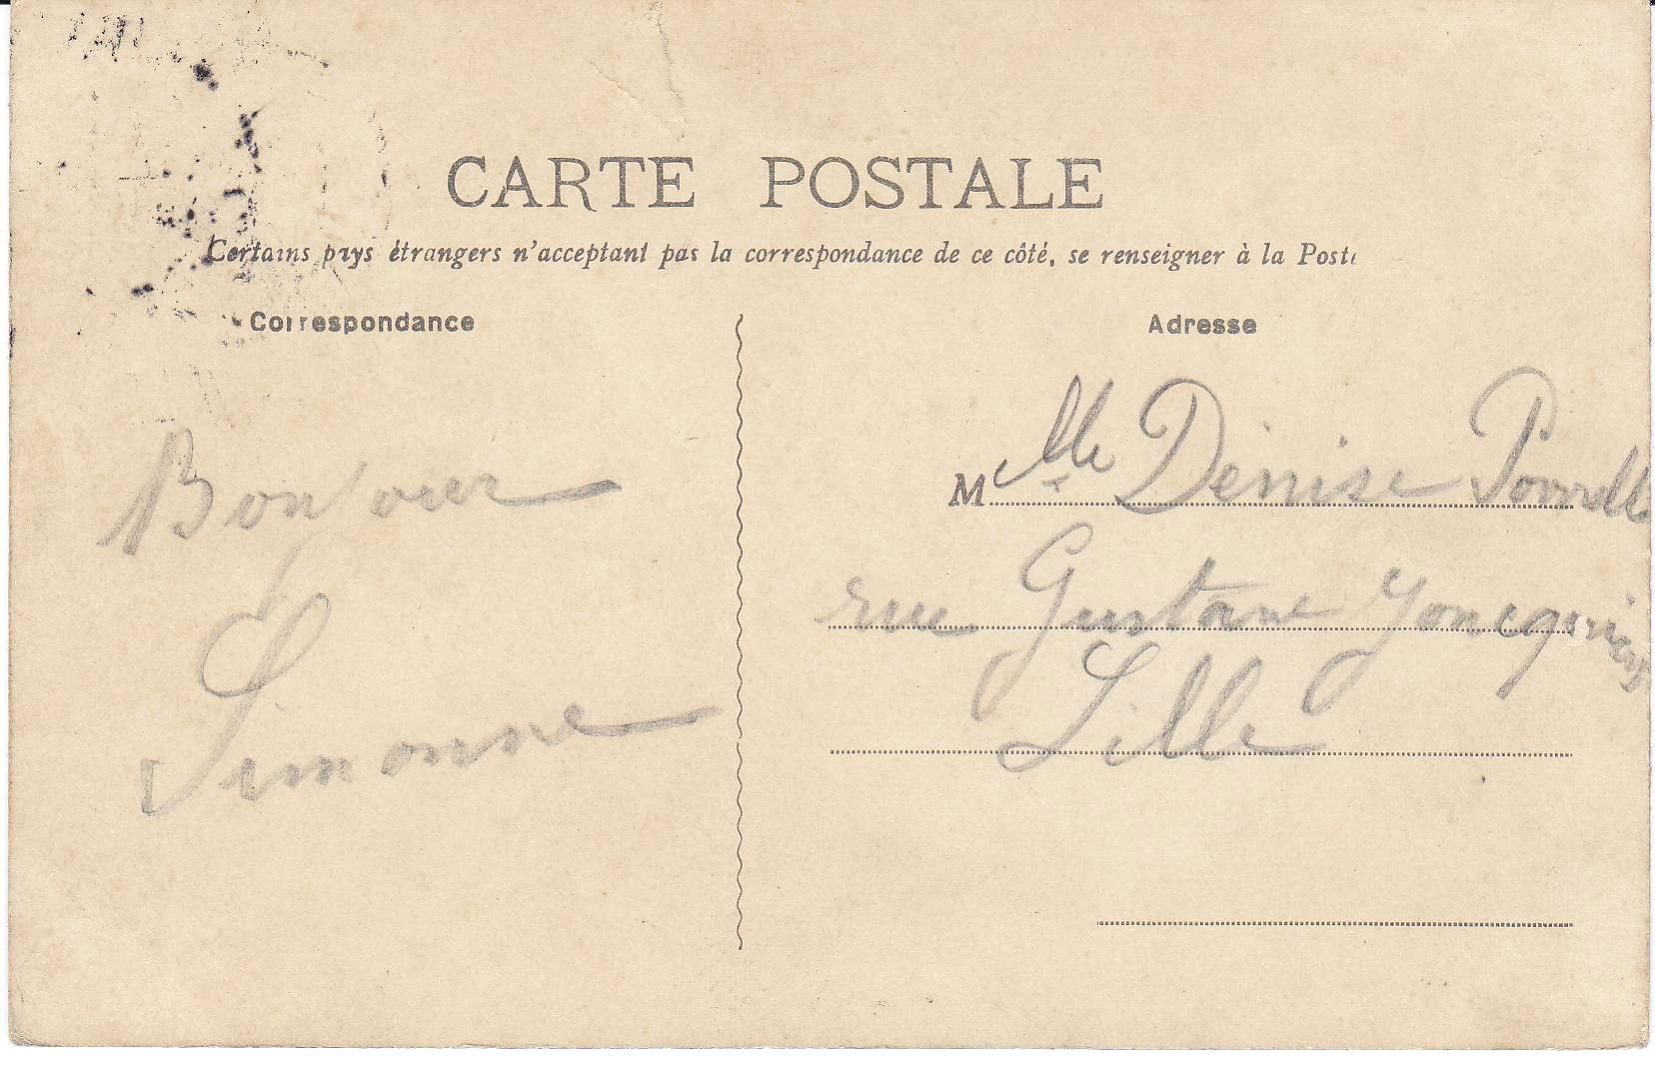 CARTE POSTALE
Certains pays étrangers n'acceptant pas la correspondance de ce côté, se renseigner à la Poste
Correspondance
Adresse
Bonjour
Simonne
Mlle Denise
rue Gustave
Lille